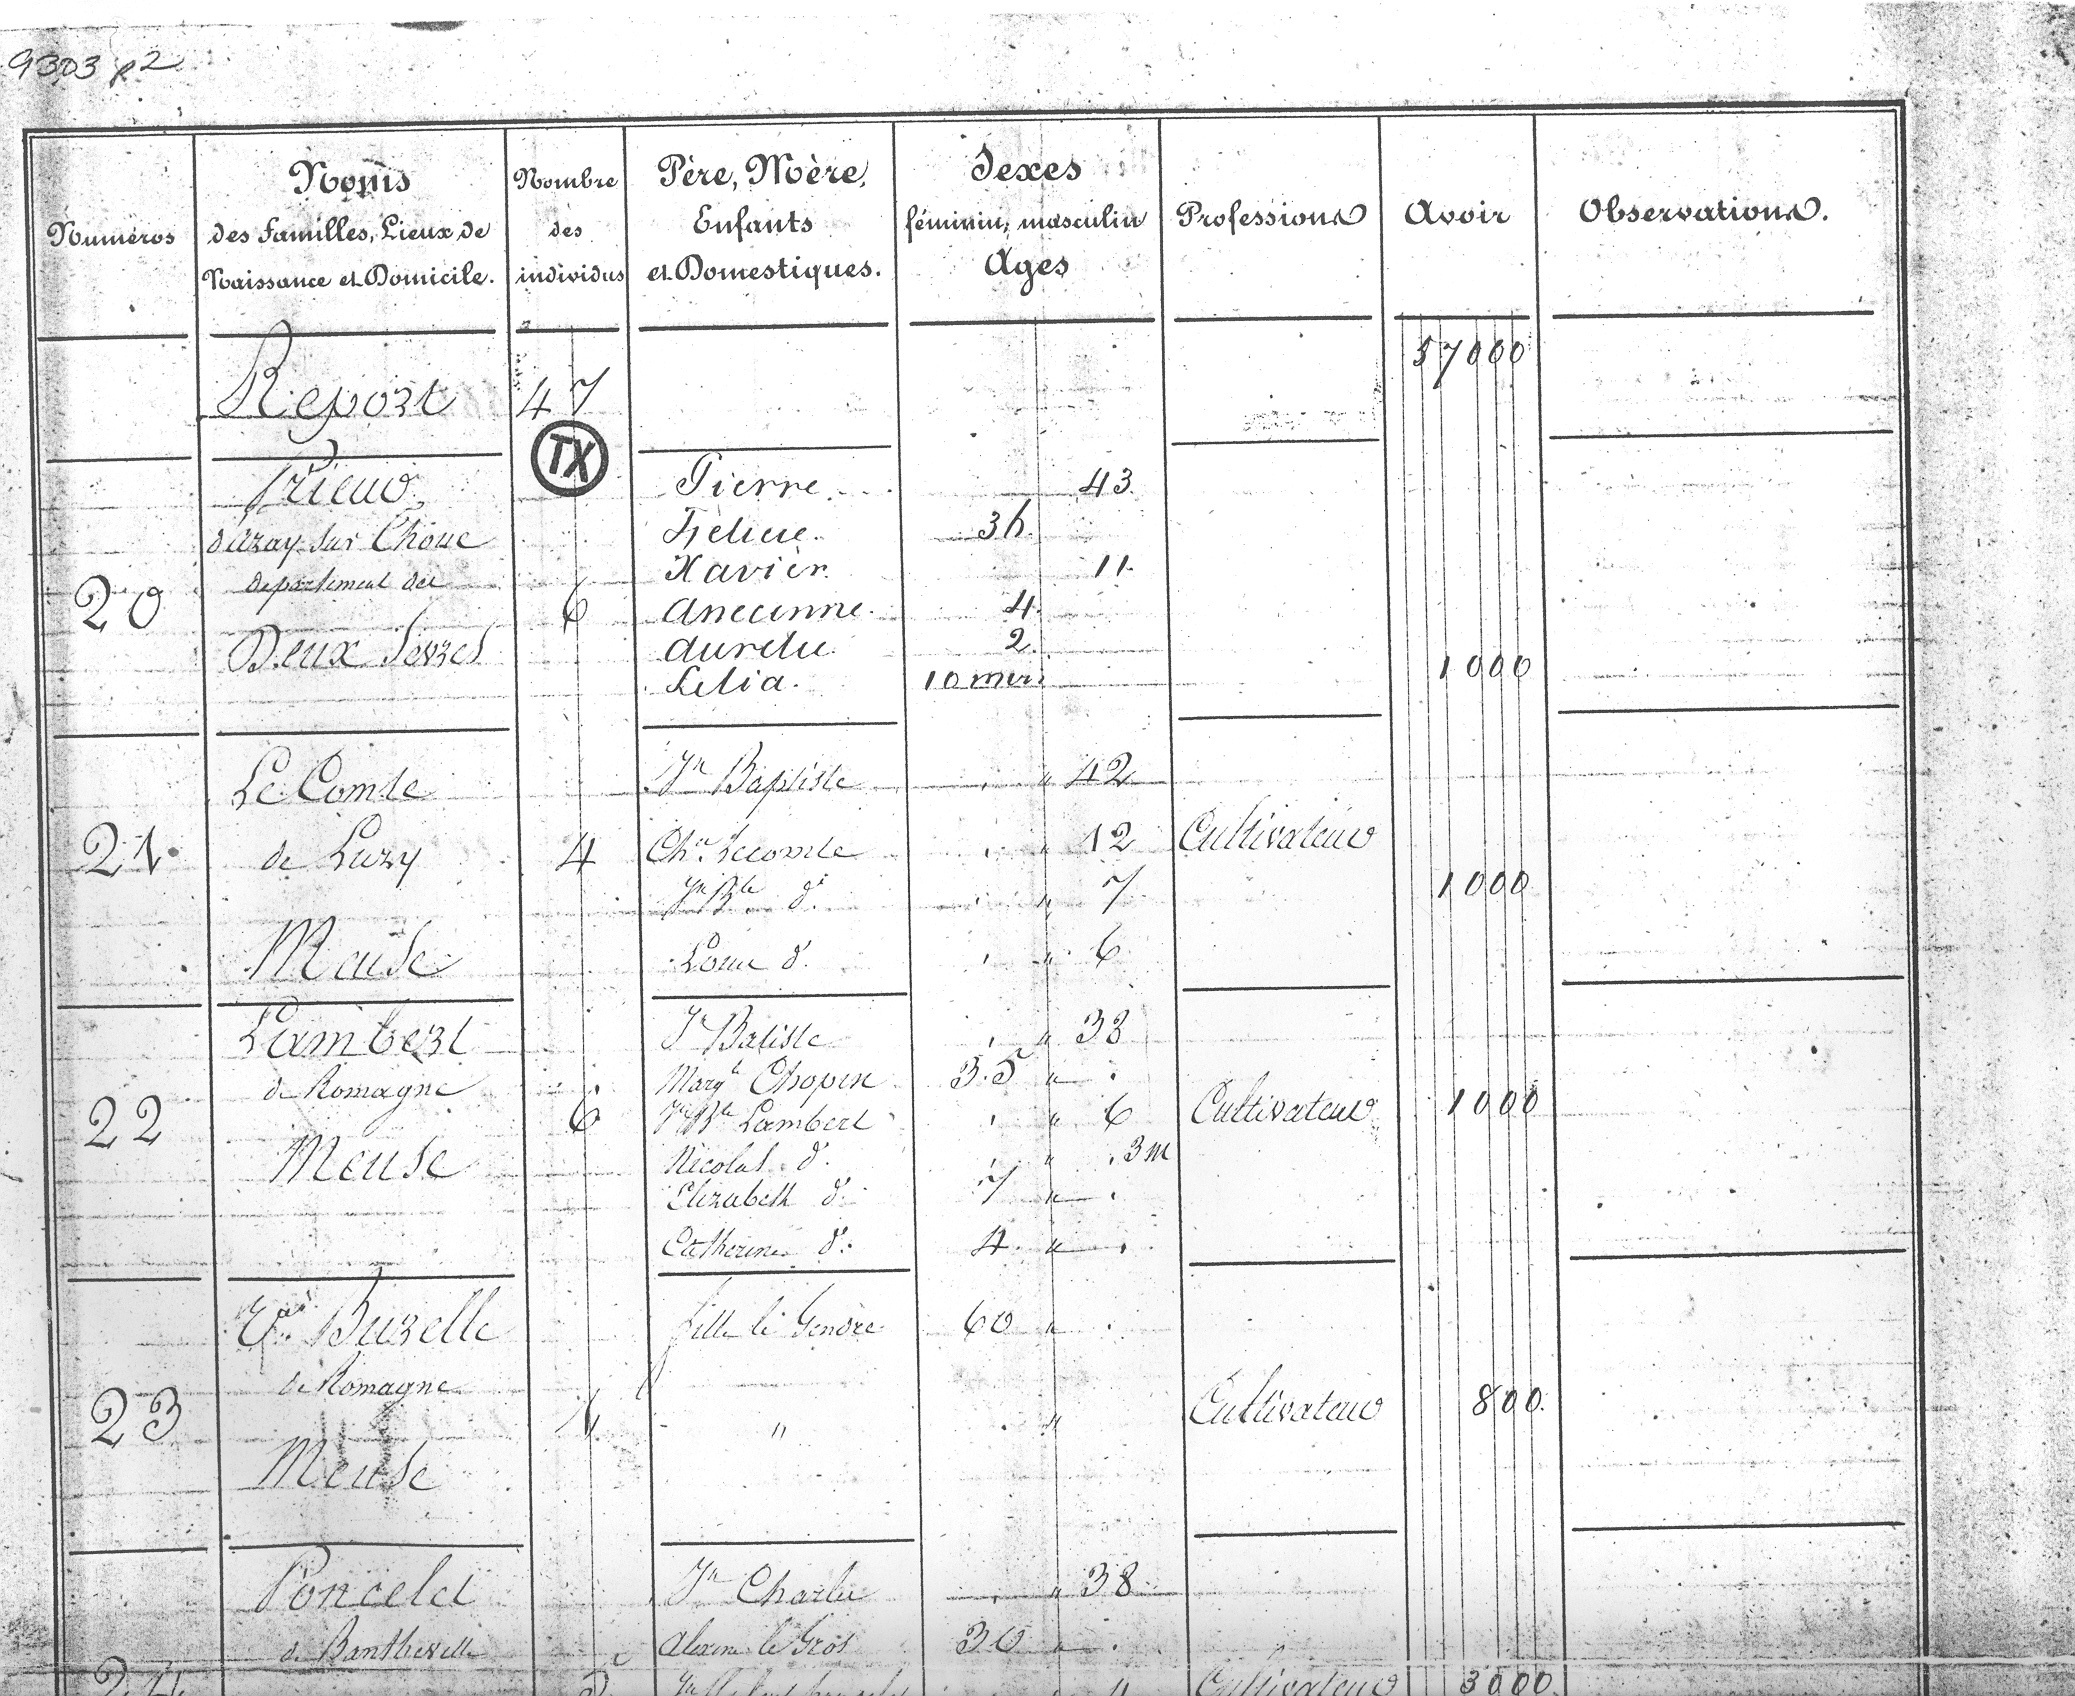 9303 p2
Numéros
Noms
des Familles, Lieux de
Naissance et Domicile.
Nombre
des
individus
Père, Mère,
Enfants
et Domestiques.
Sexes
féminin, masculin
Ages
Professions
Avoir
Observations.
Report 47 57000
TX
20
Prieur
d'Azay sur Thoue
departement des
Deux Sevres
6
Pierre 43
Felicie 36
Xavier 11
4
Aurelie 2
Lelia 10 mois
1000
21
Le Comte
de Luzy
Meuse
4
Jn Baptiste " 42
Chs Lecomte " 12
Jn Bte do " 7
Louis do " 6
Cultivateur
1000
22
Lambert
de Romagne
Meuse
6
Jn Batiste " 38
Margte Chopin 35 "
Jn Bte Lambert " 6
Nicolas do " 3m
Elizabeth do 7 "
Catherine do 4 "
Cultivateur
1000
23
Ve Burelle
de Romagne
Meuse
1
fille le Gendre 60 "
" "
Cultivateur
800
24
Poncelet
de Bantheville
Jn Charles " 38
le Gros 30 "
Cultivateur
3000